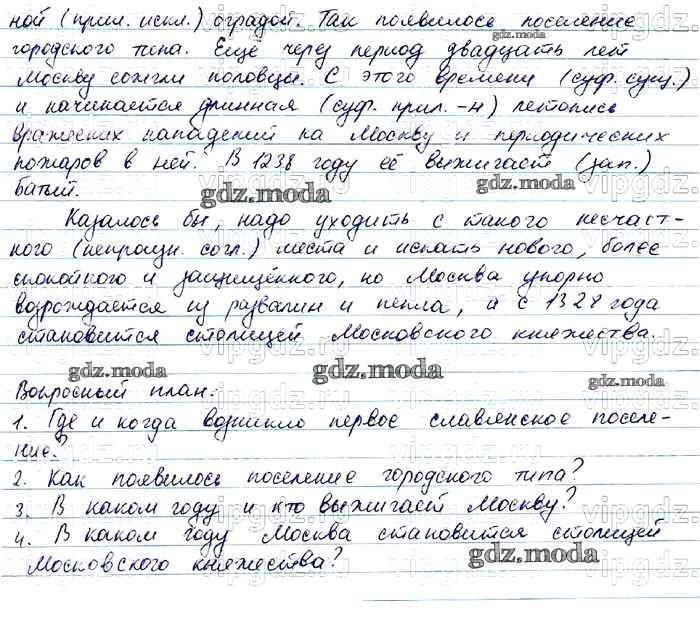 ной (прил. искл.) оградой. Так появилось поселение
городского типа. Ещё через период двадцать лет
Москву сожгли половцы. С этого времени (суф. сущ.)
и начинается длинная (суф. прил. -н) летопись
вражеских нападений на Москву и периодических
пожаров в ней. В 1238 году её выжигает (зап.)
Батый.
gdz.moda gdz.moda
Казалось бы, надо уходить с такого несчаст-
ного (непроизн. согл.) места и искать нового, более
спокойного и защищённого, но Москва упорно
возрождается из развалин и пепла, а с 1328 года
становится столицей Московского княжества.
gdz.moda gdz.moda gdz.moda
Вопросный план.
1. Где и когда возникло первое славянское поселе-
ние?
gdz.moda
2. Как появилось поселение городского типа?
3. В каком году и кто выжигает Москву?
4. В каком году Москва становится столицей
Московского княжества?
gdz.moda